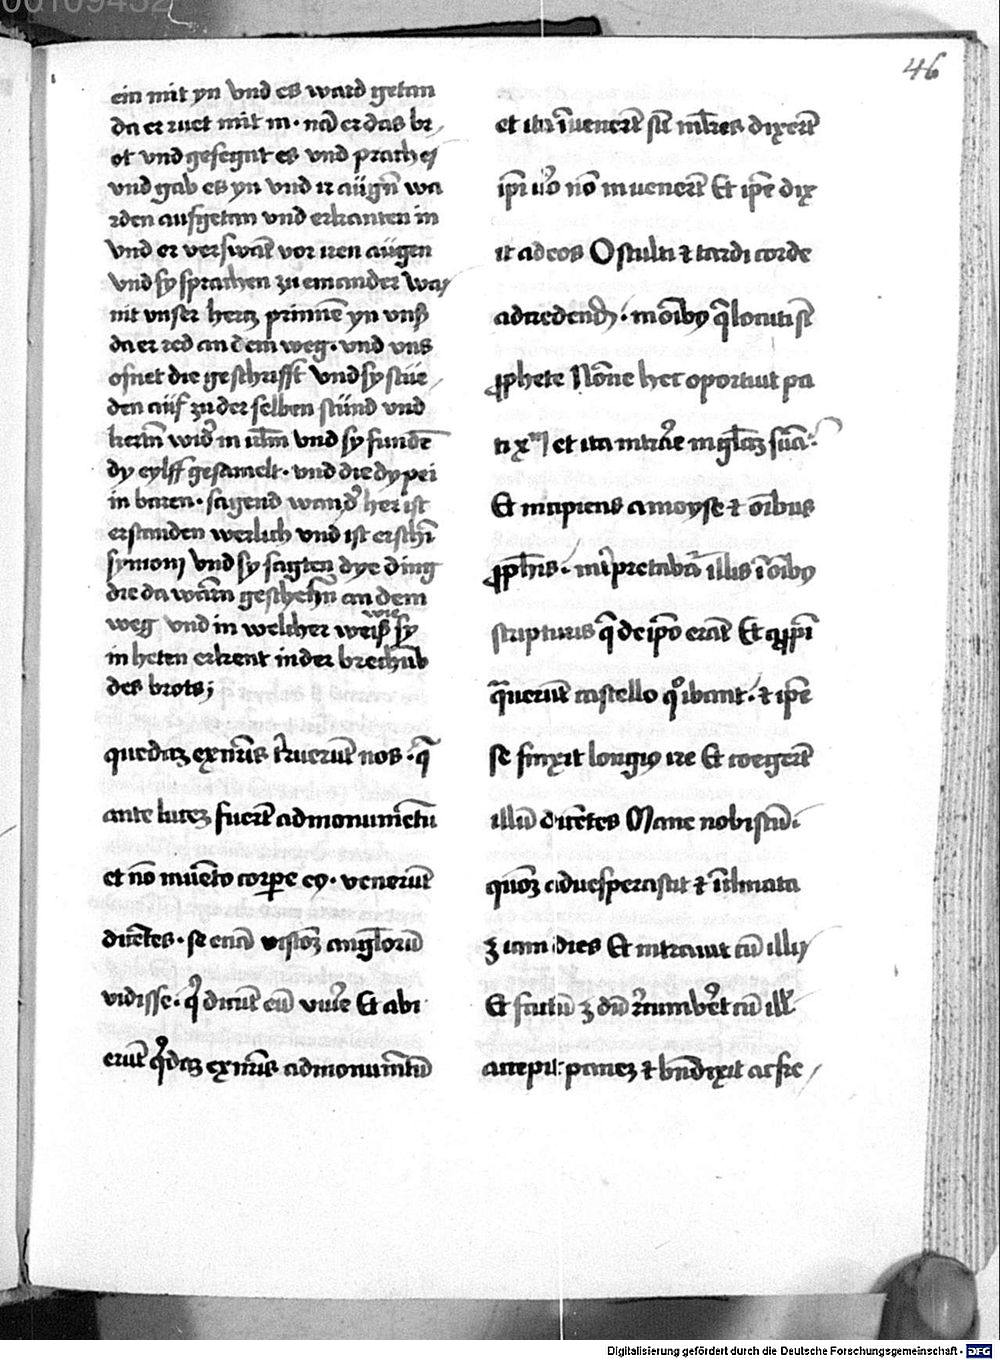 46
ein mit yn vnd es ward getan
da er ruet mit in · nā er das br
ot vnd gesegnt es vnd prach es
vnd gab es yn vnd ir aügn̄ wa
rden aufgetan vnd erkanten in
vnd er verswāt vor iren aügen
vnd sy sprachen zu einander was
nit vnser hertz prinnē yn vnß
da er red an dem weg · vnd vns
ofnet die geschrifft vnd sy stüe
den aüf zu der selben stünd vnd
kertn̄ wid̕ in irlm̄ vnd sy fundē
dy eylff gesamelt · vnd die dy pei
in baren · sagend wand̕ her ist
erstanden werlich vnd ist erschī
symonj vnd sy sagten dye ding
die da wārn geschehn̄ an dem
weg vnd in welcher weiß wie sy
in heten erkent in der brechūb
des brots;
quedaz ex nr̄is t̄ruerūt nos · q̄
ante lucez fuerūt ad monumētū
et nō inuēto corꝑe eꝯ · venerūt
dicētes · se eciā visionē angl̄orū
vidisse · qⁱ dicūt eū viuᵉe Et abi
erūt qⁱdaz ex nr̄is ad monumētū
et ita īuenerūt sic̄ mlr̄es dixerūt
ip̄m v̕o nō inuenerūt Et ip̄e dix
it ad eos O stulti ⁊ tardi corde
ad credendū · in oībꝯ q̄ locuti sūt
ꝓphete Nōne hec oportuit pa
ti xᵐ et ita intrāe in gl̄iaz suā ·
Et incipiens a moyse ⁊ oībus
ꝓph̄is · int̕pretabāt illis ī oībꝯ
scripturis q̄ de ip̄o erāt Et aꝓpī
q̄uerūt castello qͦ ibant · ⁊ ip̄e
se finxit longiꝯ ire Et coegerūt
illū dicētes Mane nobiscū ·
qm̄ aduesperascit ⁊ īclinata
ʒ iam dies Et intrauit cū illis
Et factū ʒ dū r̄cumbᵉet cū ill̕
accepit panez ⁊ bn̄dixit ac fre